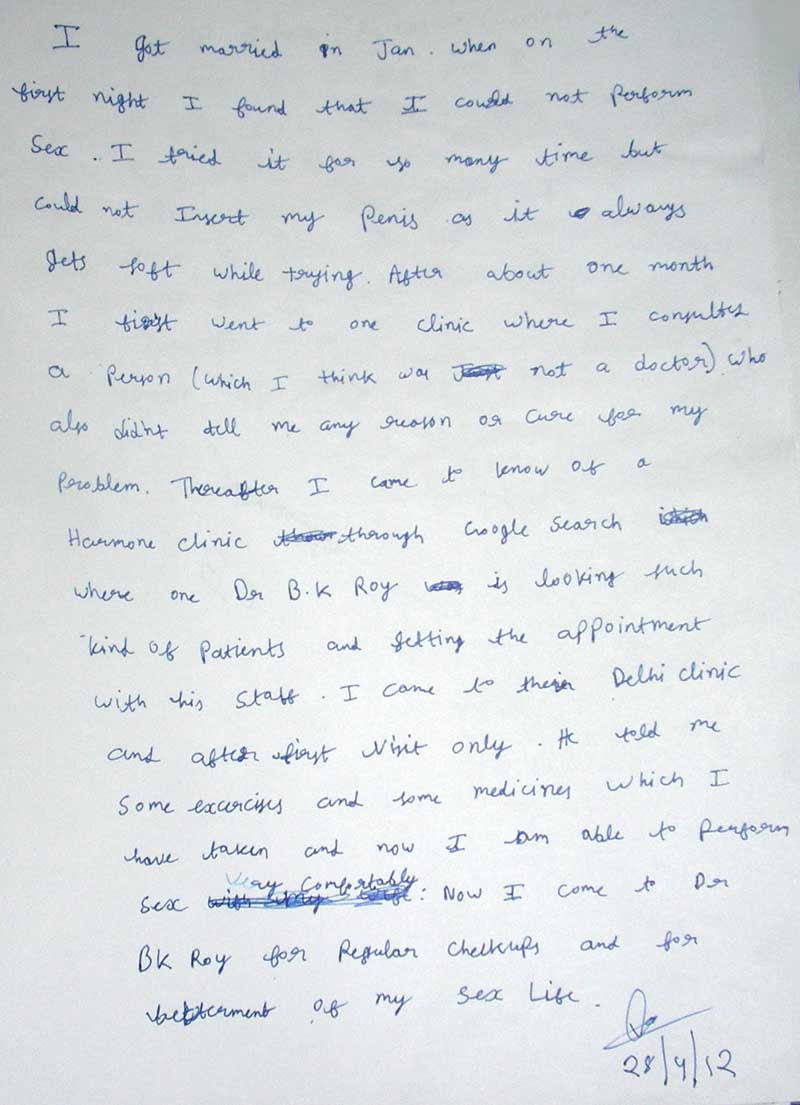 I got married in Jan. when on the
first night I found that I could not perform
Sex. I tried it for so many time but
could not Insert my Penis as it always
gets soft while trying. After about one month
I first went to one clinic where I consulted
a person (which I think was not a doctor) who
also didnt tell me any reason or cure for my
Problem. Thereafter I came to know of a
Harmone clinic through Google Search
where one Dr B.K Roy is looking such
kind of Patients and getting the appointment
with his Staff. I came to their Delhi clinic
and after first Visit only. He told me
Some excercises and some medicines which I
have taken and now I am able to perform
Sex Very Comfortably: Now I come to Dr
BK Roy for Regular Checkups and for
betterment of my Sex Life.
28/4/12